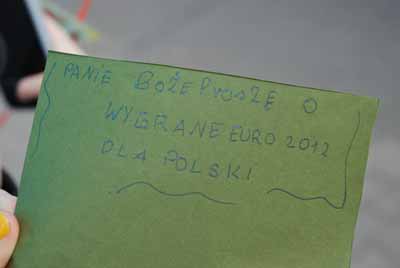 PANIE BOŻE PROSZĘ O
WYGRANE EURO 2012
DLA POLSKI